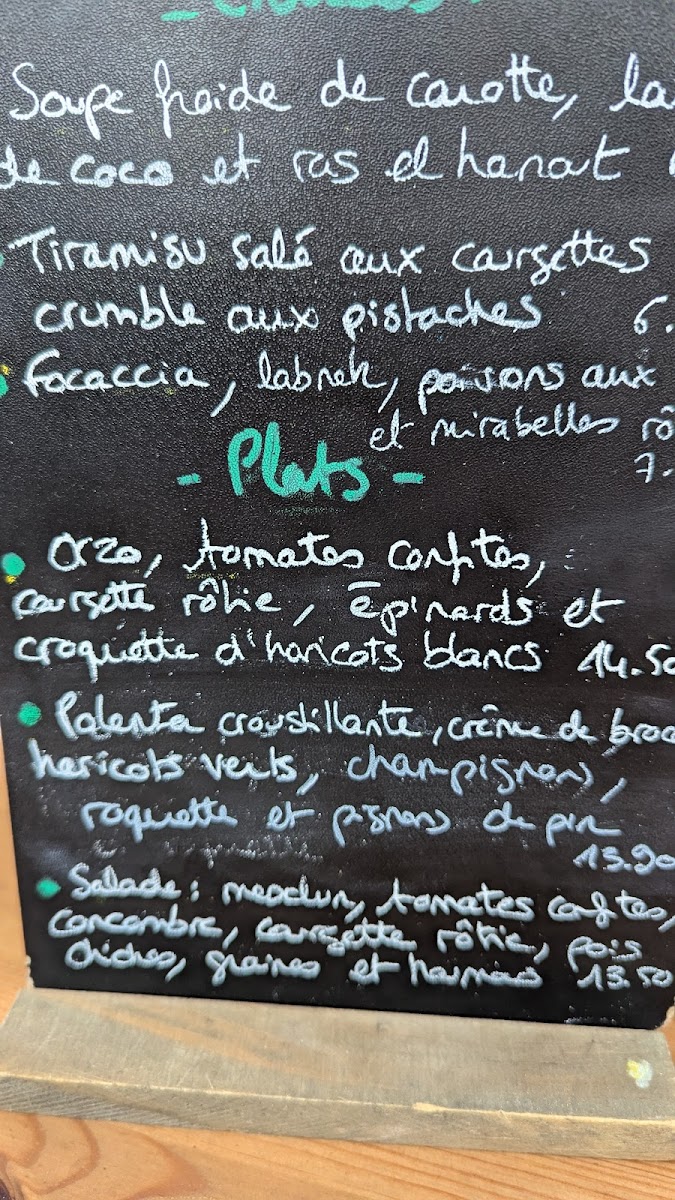 Soupe froide de carotte, la
de coco et ras el hanout
Tiramisu salé aux courgettes
crumble aux pistaches 6.
Focaccia, labneh, poivrons aux
et mirabelles rô
7.
- Plats -
Orzo, tomates confites,
courgette rôtie, épinards et
croquette d'haricots blancs 14.50
Polenta croustillante, crème de broc
haricots verts, champignons,
roquette et pignons de pin
13.90
Salade: mesclun, tomates confites,
concombre, courgette rôtie, pois
chiches, graines et houmous 13.50